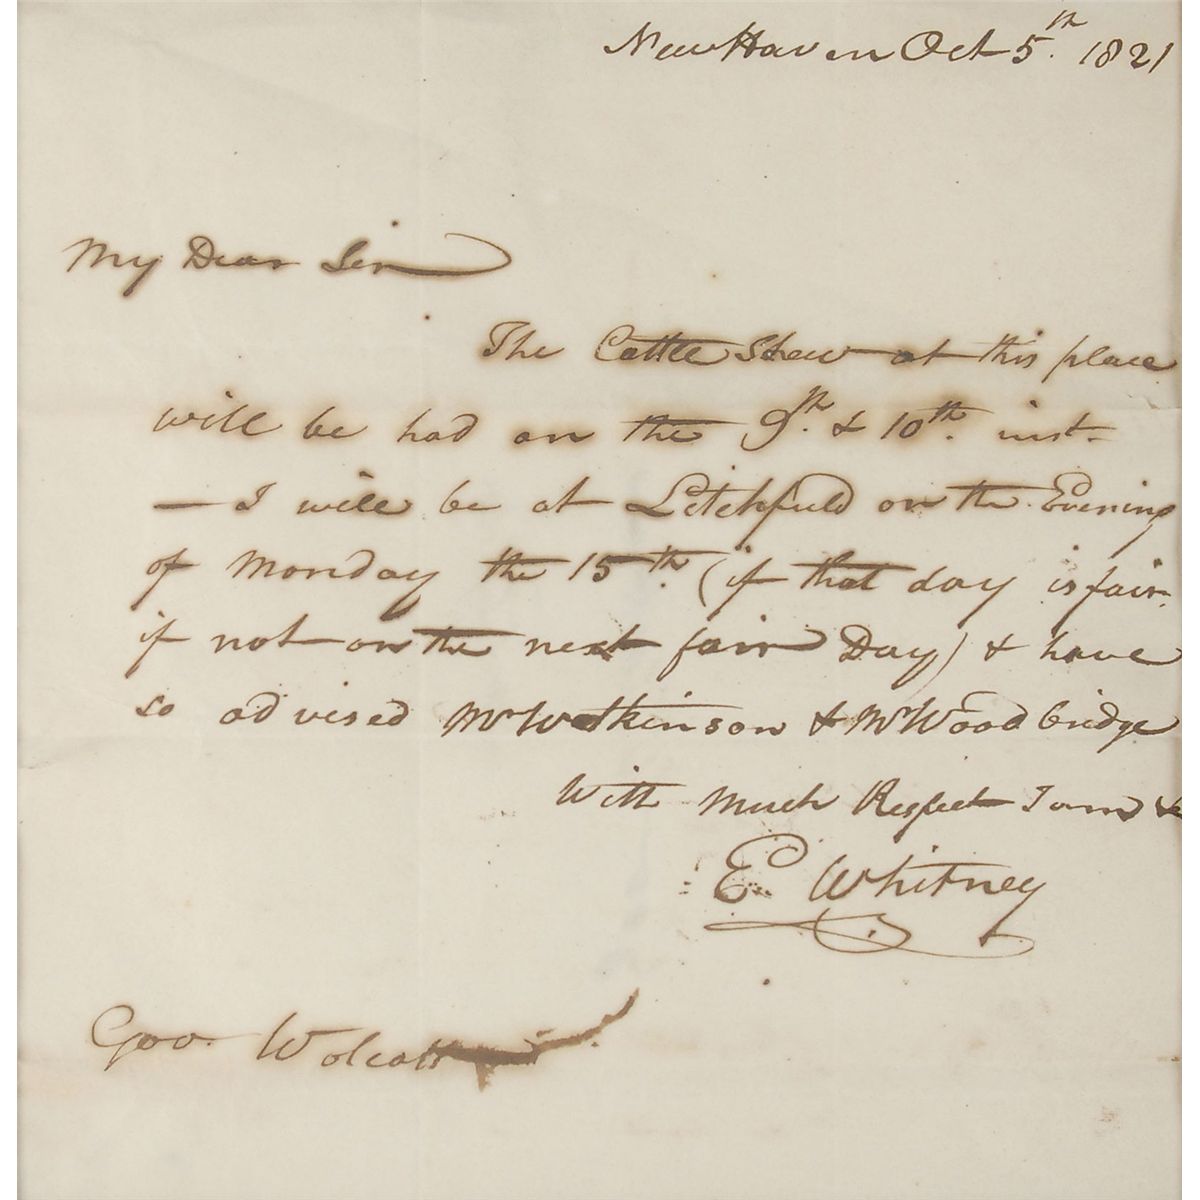 New Haven Oct 5th. 1821
My Dear Sir
The Cattle Shew at this place
will be had on the 9th. & 10th. inst-
— I will be at Litchfield on the Evening
of Monday the 15th. (if that day is fair-
if not on the next fair Day) & have
so advised Mr Watkinson & Mr Woodbridge
With Much Respect I am &
E. Whitney
Gov. Wolcott